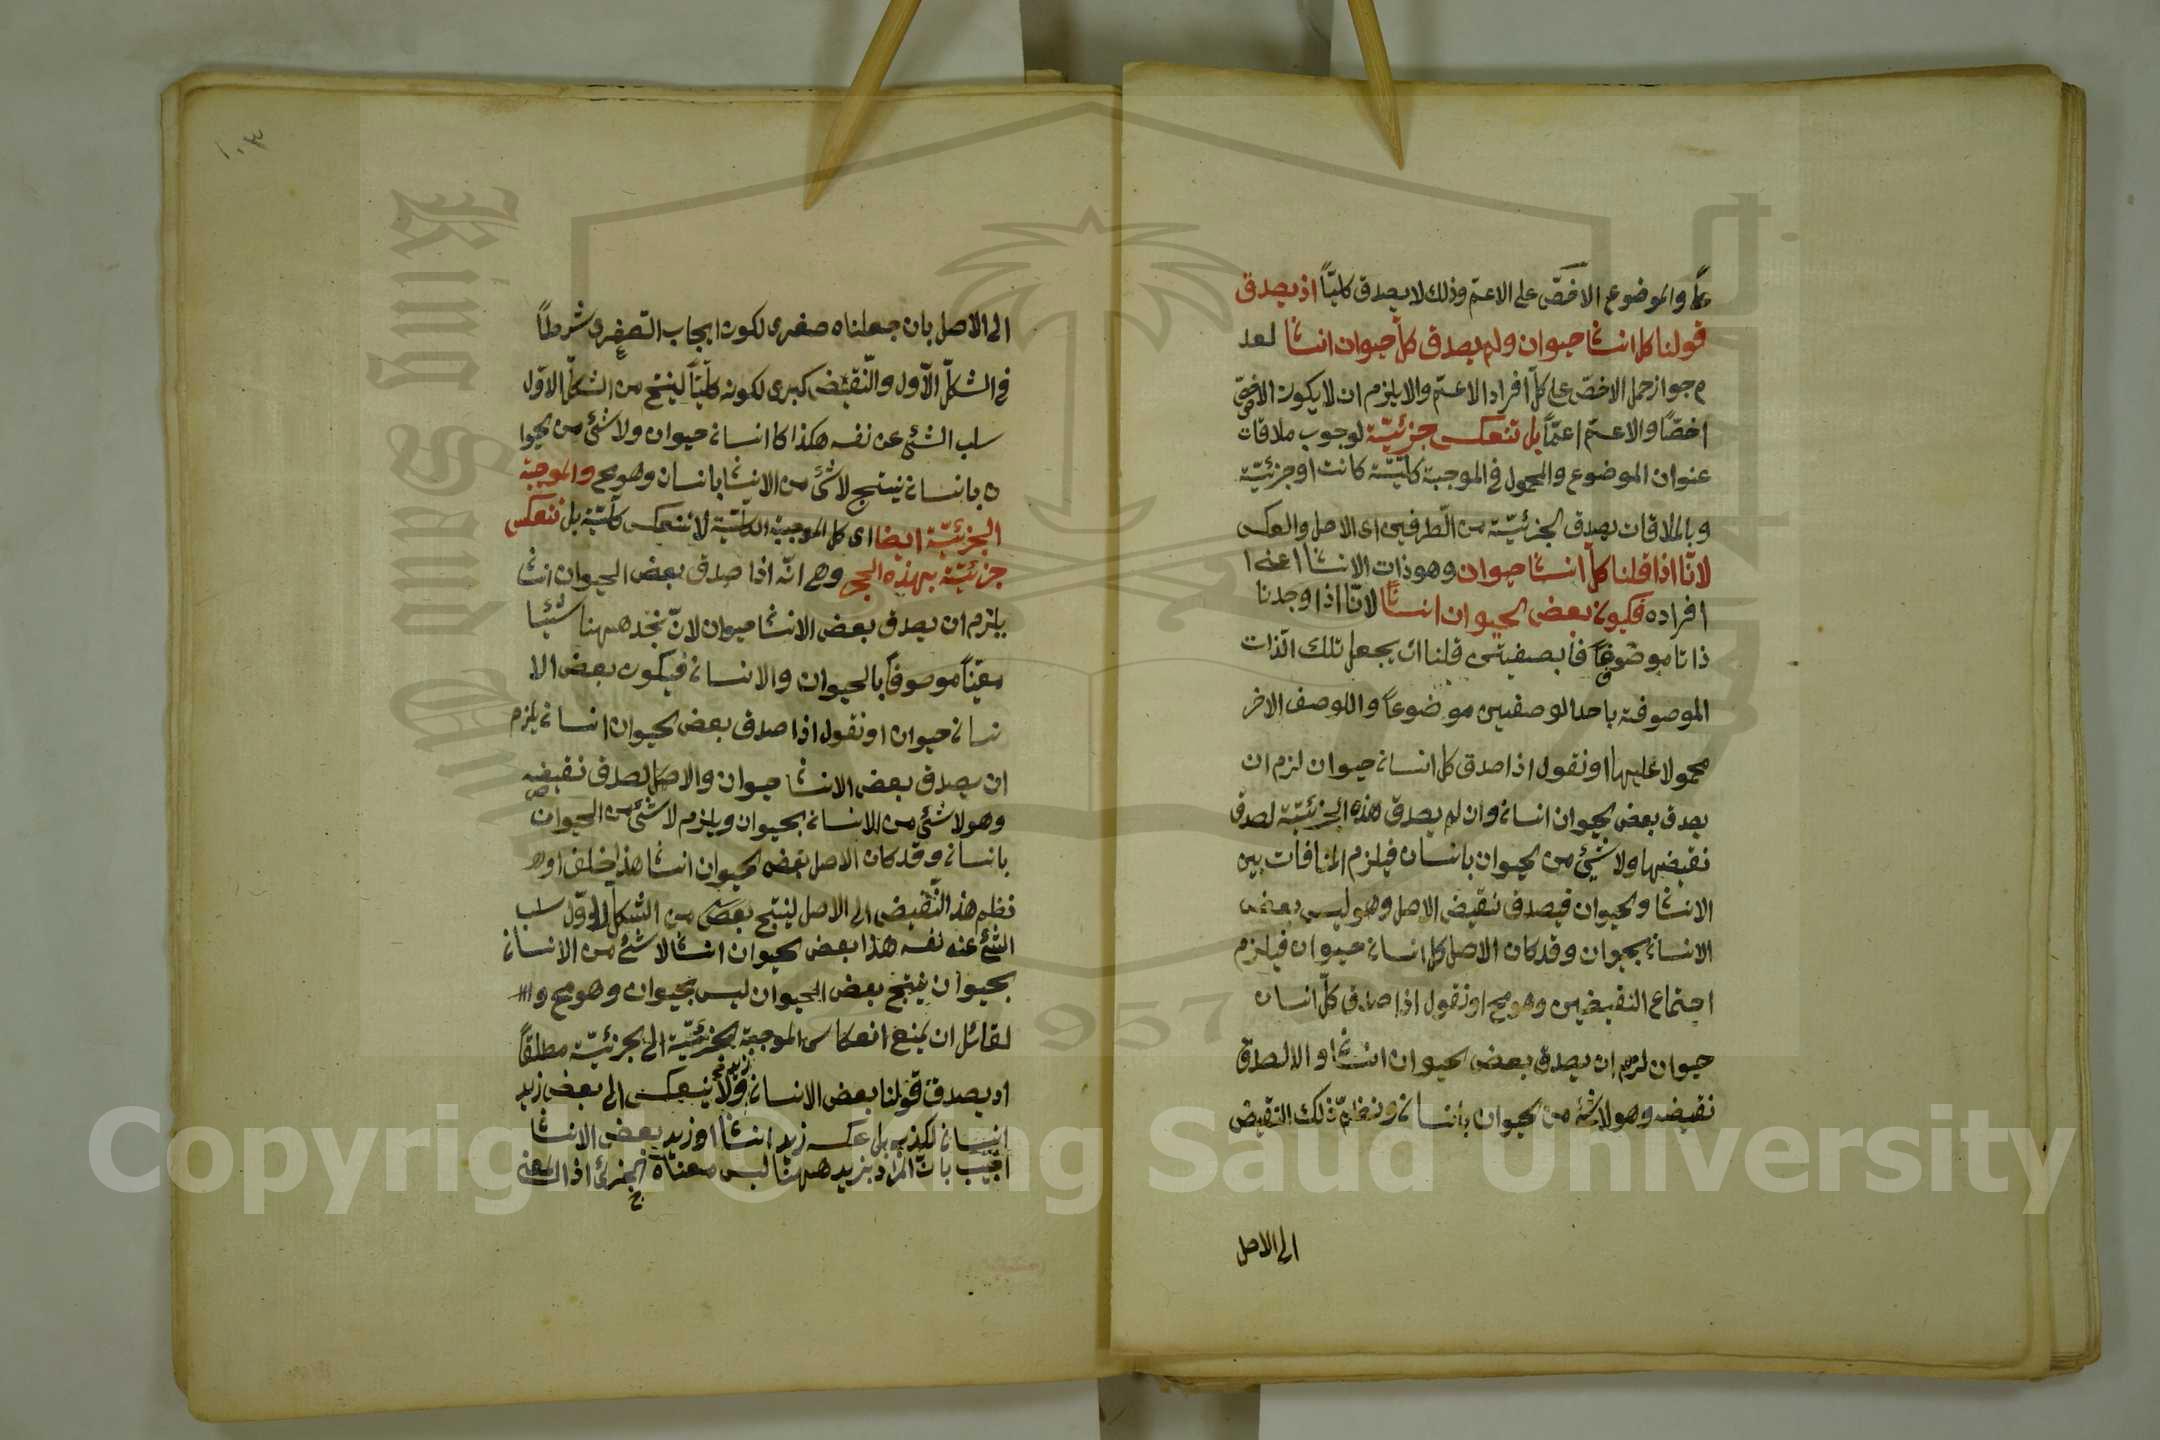 عمّاً والموضوع الاخصّ على الاعمّ وذلك لا يصدق كليّاً اذ يصدق
قولنا كل انسان حيوان ولم يصدق كل حيوان انسان لعد
م جواز حمل الاخصّ على كلّ افراد الاعمّ والا يلزم ان لا يكون الاخصّ
اخصّاً والاعمّ اعمّاً بل تنعكس جزئيّة لوجوب ملاقات
عنوان الموضوع والمحمول في الموجبة كليّة كانت او جزئيّة
وبالملاقات يصدق الجزئيّة من الطرفين اى الاصل والعكس
لانّا اذا قلنا كلّ انسان حيوان وهو ذات الانسان اعنى ا
افراده فيكون بعض الحيوان انسانا لانّا اذا وجدنا
ذاتا موصوفاً بصفتين قلنا ان يجعل تلك الذات
الموصوفة باحد الوصفين موضوعاً والوصف الاخر
محمولا عليها او نقول اذا صدق كل انسان حيوان لزم ان
يصدق بعض الحيوان انسان وان لم يصدق هذه الجزئيّة لصدق
نقيضها ولا شئ من الحيوان بانسان فيلزم المنافات بين
الانسان والحيوان فيصدق نقيض الاصل وهو ليس بعض
الانسان بحيوان وقد كان الاصل كل انسان حيوان فيلزم
اجتماع النقيضين وهو مح او نقول اذا صدق كلّ انسان
حيوان لزم ان يصدق بعض الحيوان انسان او الا لصدق
نقيضه وهو لا شئ من الحيوان بانسان ونظم ذلك النقيض
الى الاصل
١٠٣
الى الاصل بان جعلناه صغرى لكون ايجاب الصغرى شرطاً
في الشكل الاول والنقيض كبرى لكونه كليّاً لينتج من الشكل الاول
سلب الشئ عن نفسه هكذا كل انسان حيوان ولا شئ من الحيوا
ن بانسان ينتج لا شئ من الانسان بانسان وهو مح والموجبة
الجزئيّة ايضا اى كل الموجبة الكليّة لا تنعكس كليّة بل تنعكس
جزئيّة بهذه الحجج وهى انّه اذا صدق بعض الحيوان انسان
يلزم ان يصدق بعض الانسان حيوان لانّ نجد ههنا شيئا
معيّناً موصوفاً بالحيوان والانسان فيكون بعض الا
نسان حيوان او نقول اذا صدق بعض الحيوان انسان يلزم
ان يصدق بعض الانسان حيوان والا لصدق نقيضه
وهو لا شئ من الانسان بحيوان ويلزم لا شئ من الحيوان
بانسان وقد كان الاصل بعض الحيوان انسان هذا خلف او
نظم هذا النقيض الى الاصل لينتج بعض من الشكل الاول سلب
الشئ عنه نفسه هذا بعض الحيوان انسان لا شئ من الانسان
بحيوان ينتج بعض الحيوان ليس بحيوان وهو مح
لقائل ان يمنع انعكاس الموجبة الجزئيّة الى الجزئيّة مطلقاً
اذ يصدق قولنا بعض الانسان زيد ولا ينعكس الى بعض زيد
انسان لكذبه بل عكسه زيد انسان او زيد بعض الانسان
اجيب بانّ المراد بزيد ههنا ليس معناه الجزئ اذ المعنى